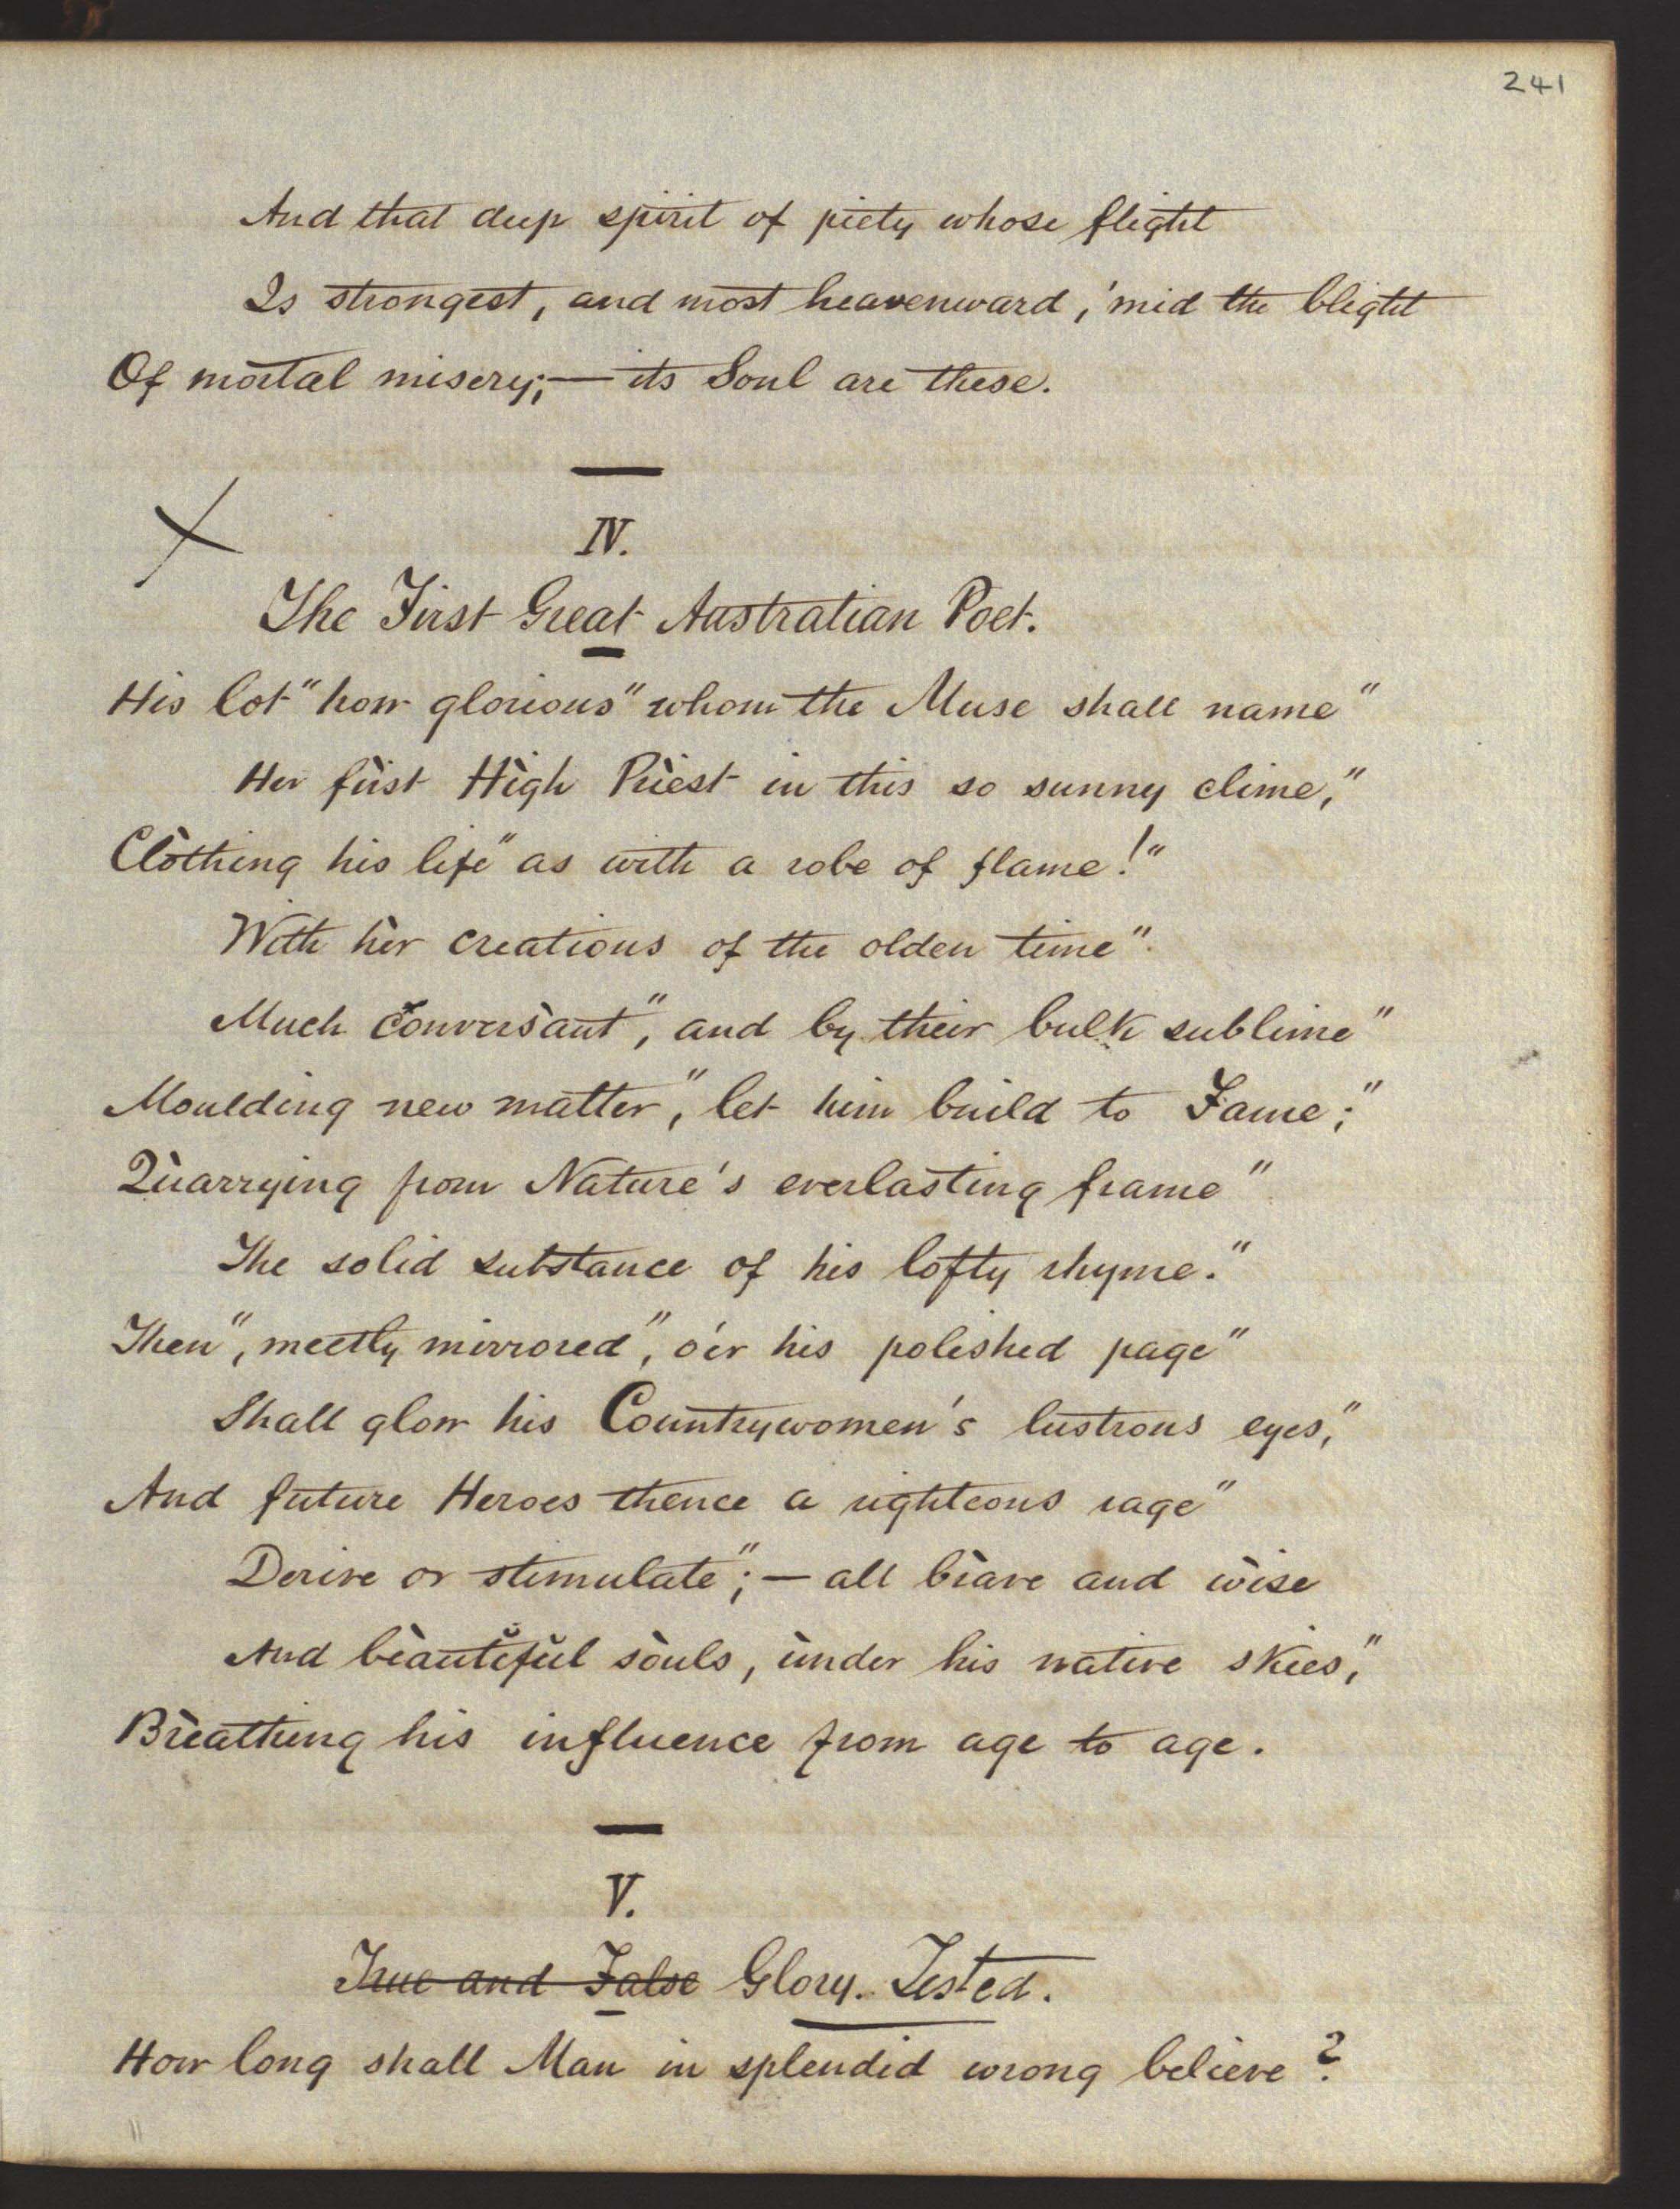 241
And that deep spirit of piety whose flight
Is strongest, and most heavenward, 'mid the blight
Of mortal misery;— its Soul are these.
IV.
The First Great Australian Poet.
His lot" how glorious" whom the Muse shall name"
Her first High Priest in this so sunny clime,"
Clothing his life" as with a robe of flame!"
With her creations of the olden time"
Much conversant", and by their bulk sublime"
Moulding new matter", let him build to Fame;"
Quarrying from Nature's everlasting frame"
The solid substance of his lofty rhyme."
Then", meetly mirrored", o'er his polished page"
Shall glow his Countrywomen's lustrous eyes,"
And future Heroes thence a righteous rage"
Derive or stimulate";— all brave and wise
And beautiful souls, under his native skies,"
Breathing his influence from age to age.
V.
True and False Glory. Tested.
How long shall Man in splendid wrong believe?